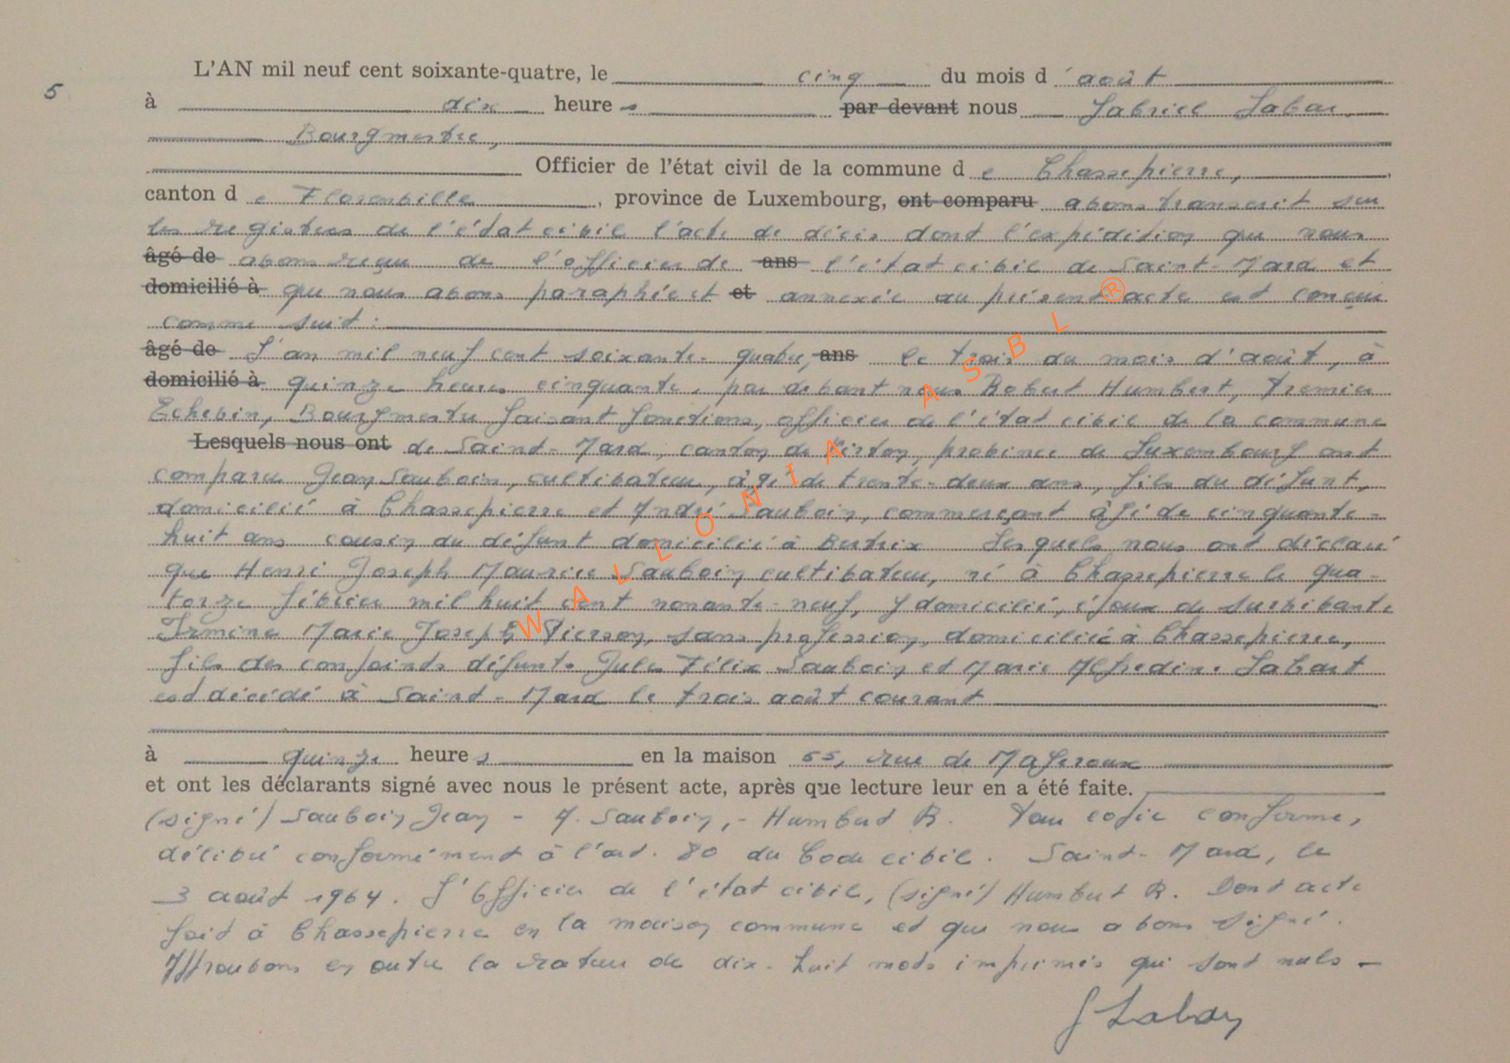 L'AN mil neuf cent soixante-quatre, le cinq du mois d'août
5
à dix heures par devant nous Gabriel Labar,
Bourgmestre,
Officier de l'état civil de la commune de Chassepierre,
canton de Florenville, province de Luxembourg, ont comparu avons transcrit sur
les registres de l'état civil l'acte de décès dont l'expédition que nous
âgé de avons reçue de l'officier de ans l'état civil de Saint-Mard et
domicilié à que nous avons paraphée et et annexée au présent acte est conçue
comme suit :
âgé de L'an mil neuf cent soixante-quatre, ans le trois du mois d'août, à
domicilié à quinze heures cinquante, par devant nous Robert Humbert, Premier
Echevin, Bourgmestre faisant fonctions, officier de l'état civil de la commune
Lesquels nous ont de Saint-Mard, canton de Virton, province de Luxembourg ont
comparu Jean Sauboin, cultivateur, âgé de trente-deux ans, fils du défunt,
domicilié à Chassepierre et André Sauboin, commerçant âgé de cinquante-
huit ans cousin du défunt domicilié à Bertrix Lesquels nous ont déclaré
que Henri Joseph Maurice Sauboin cultivateur, né à Chassepierre le qua-
torze février mil huit cent nonante-neuf, y domicilié, époux de survivante
Irmine Marie Joseph Pierson, sans profession, domiciliée à Chassepierre,
fils des conjoints défunts Jules Félix Sauboin et Marie Alfredine Labart
est décédé à Saint-Mard le trois août courant
à quinze heures en la maison 55, rue de Mageroux
et ont les déclarants signé avec nous le présent acte, après que lecture leur en a été faite.
(signé) Sauboin Jean - A. Sauboin, - Humbert R. Pour copie conforme,
délivré conformément à l'art. 80 du Code civil. Saint-Mard, le
3 août 1964. L'Officier de l'état civil, (signé) Humbert R. Dont acte
fait à Chassepierre en la maison commune et que nous avons signé.
Approuvons en outre la rature de dix-huit mots imprimés qui sont nuls -
WALLONIA ASBL ®